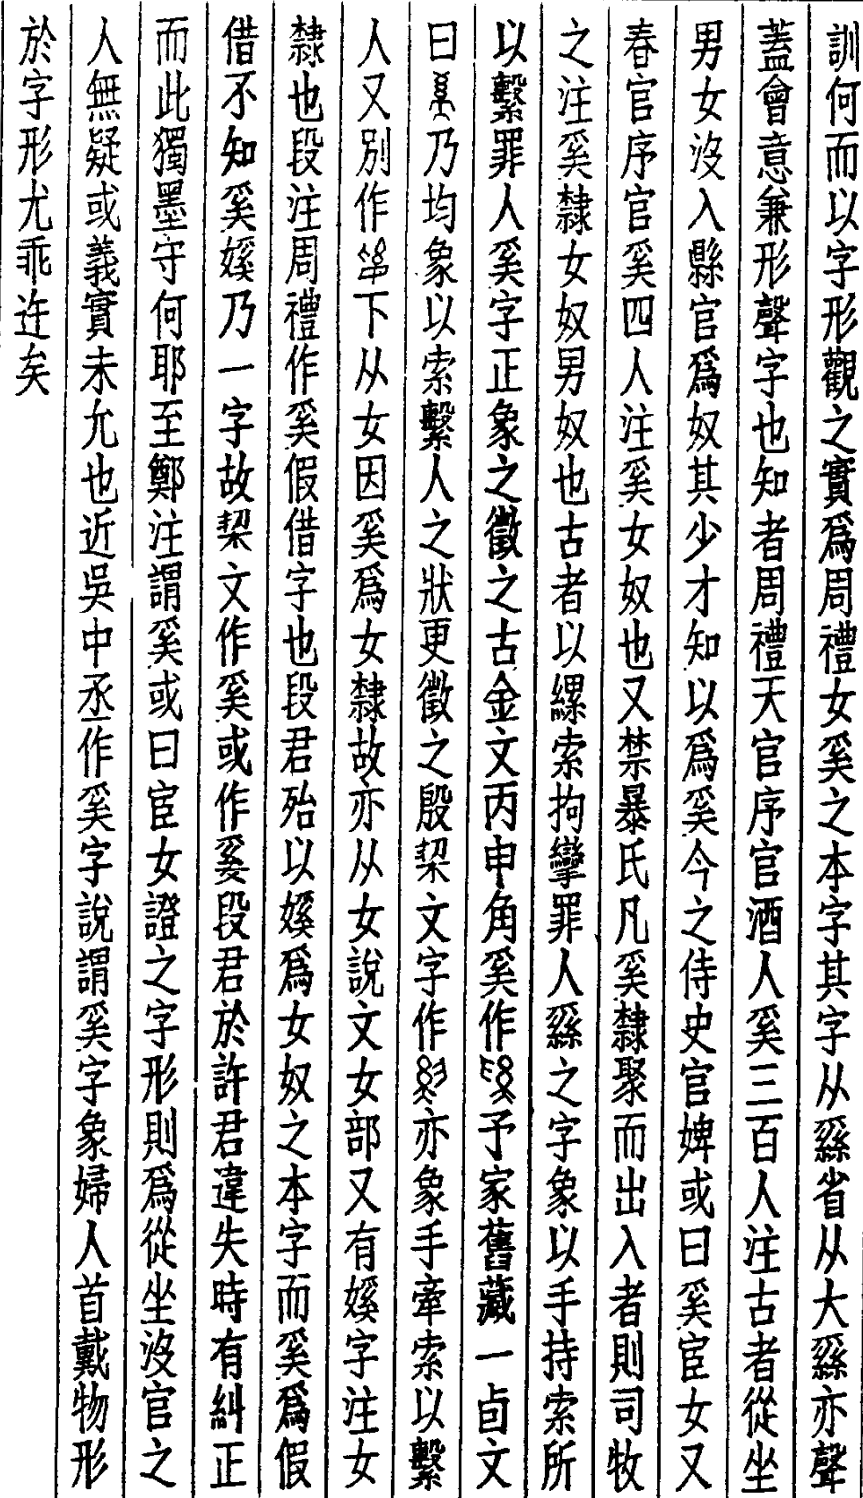 訓何而以字形觀之實爲周禮女奚之本字其字从繇省从大繇亦聲
蓋會意兼形聲字也知者周禮天官序官酒人奚三百人注古者從坐
男女沒入縣官爲奴其少才知以爲奚今之侍史官婢或曰奚宦女又
春官序官奚四人注奚女奴也又禁暴氏凡奚隸聚而出入者則司牧
之注奚隸女奴男奴也古者以縲索拘攣罪人繇之字象以手持索所
以繫罪人奚字正象之徵之古金文丙申角奚作予家舊藏一卣文
曰乃均象以索繫人之狀更徵之殷栔文字作亦象手牽索以繫
人又別作下从女因奚爲女隸故亦从女說文女部又有㜎字注女
隸也段注周禮作奚假借字也段君殆以㜎爲女奴之本字而奚爲假
借不知奚㜎乃一字故栔文作奚或作㜎段君於許君違失時有糾正
而此獨墨守何耶至鄭注謂奚或曰宦女證之字形則爲從坐沒官之
人無疑或義實未允也近吳中丞作奚字說謂奚字象婦人首戴物形
於字形尤乖迕矣